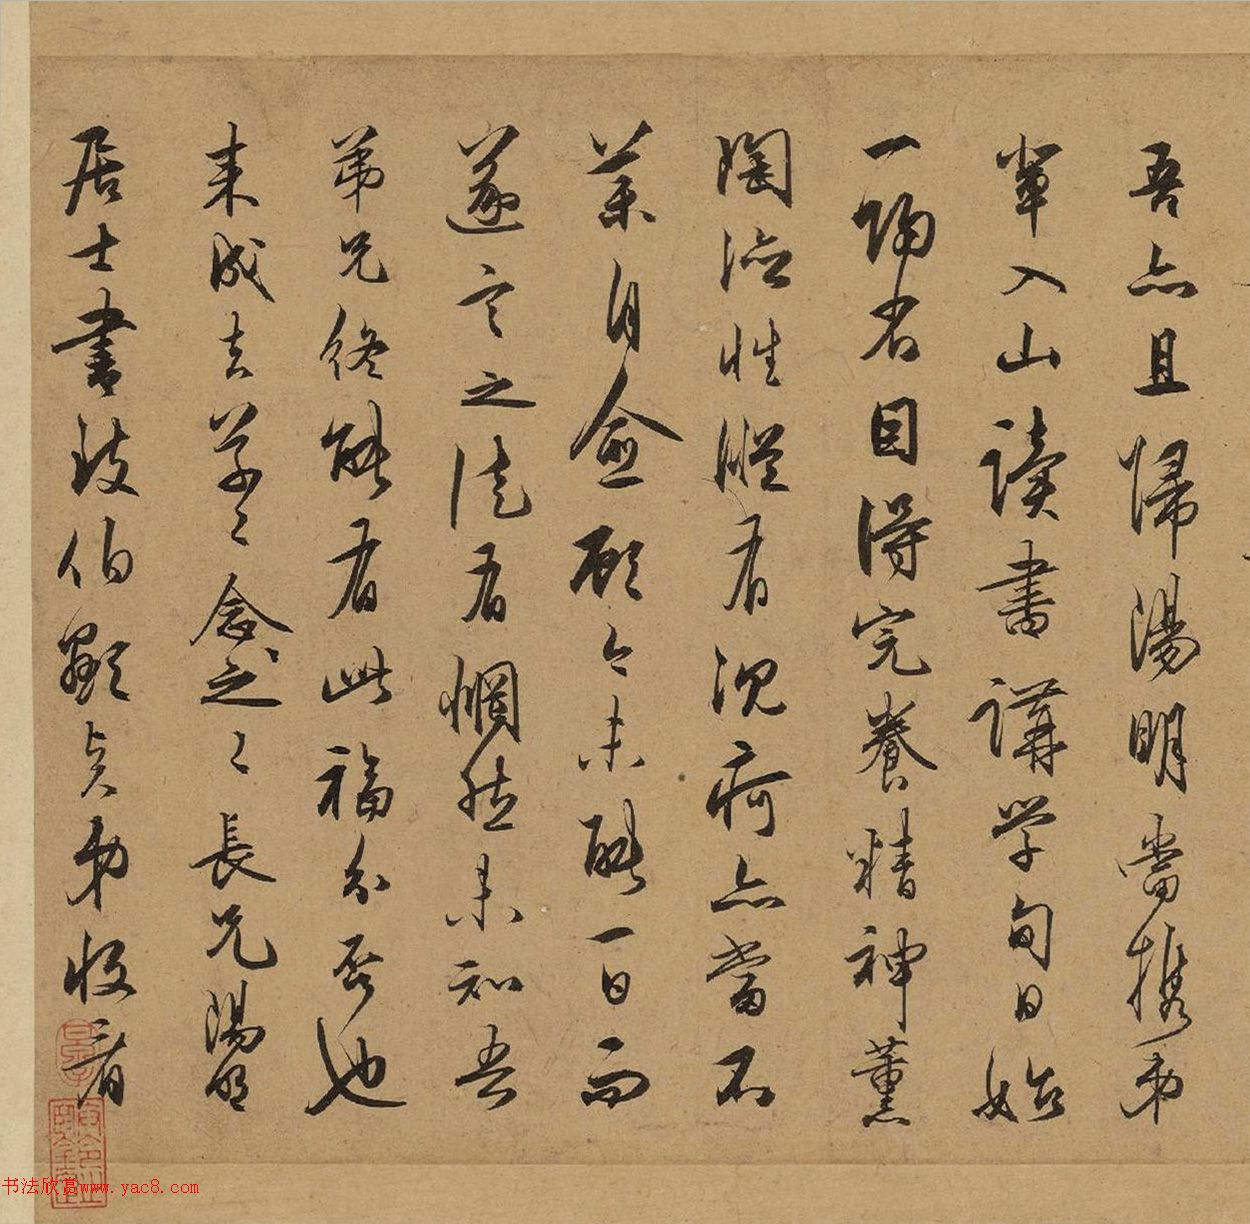 吾亦且歸陽明當攜弟
輩入山讀書講學旬日始
一歸省因得完養精神薰
陶德性縱有沉疴亦當不
藥自愈顧今未能一日而
遂言之徒有惘然未知吾
弟兄終能有此福分否也
來成去草草念之念之長兄陽明
居士書致伯顯賢弟收看
书法欣赏www.yac8.com